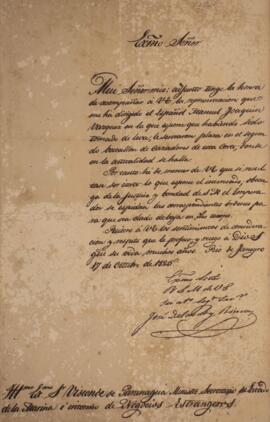 Exmo Señor
Muy Señor mio: adjunto tengo la honra
de acompañar a VE la representacion que
me ha dirigido el Español Manuel Joaquin
Vazquez en la que expone que habiendo sido
tomado de leva, le sentaron plaza en el segun
do batallon de Cazadores de esta corte, donde
en la actualidad se halla.
Por tanto he de merecer de VE que si resul
tase ser cierto lo que expone el interesado, obten
ga de la justicia y bondad de S.M. el Empera
dor se expidan las correspondientes ordenes pa
ra que sea dado de baja en
Reitero a VE los sentimientos de considera
cion y respeto que le profeso y ruego a Dios
gue su vida muchos años. Rio de Janeyro
17 de Octubre de 1826
Exmo Señor
B L M de VE
su at.
José
Illmo Exmo Sr Visconde de Paranagua Ministro Secretario de Estado
de la Marina é interino de Negocios Estrangeros